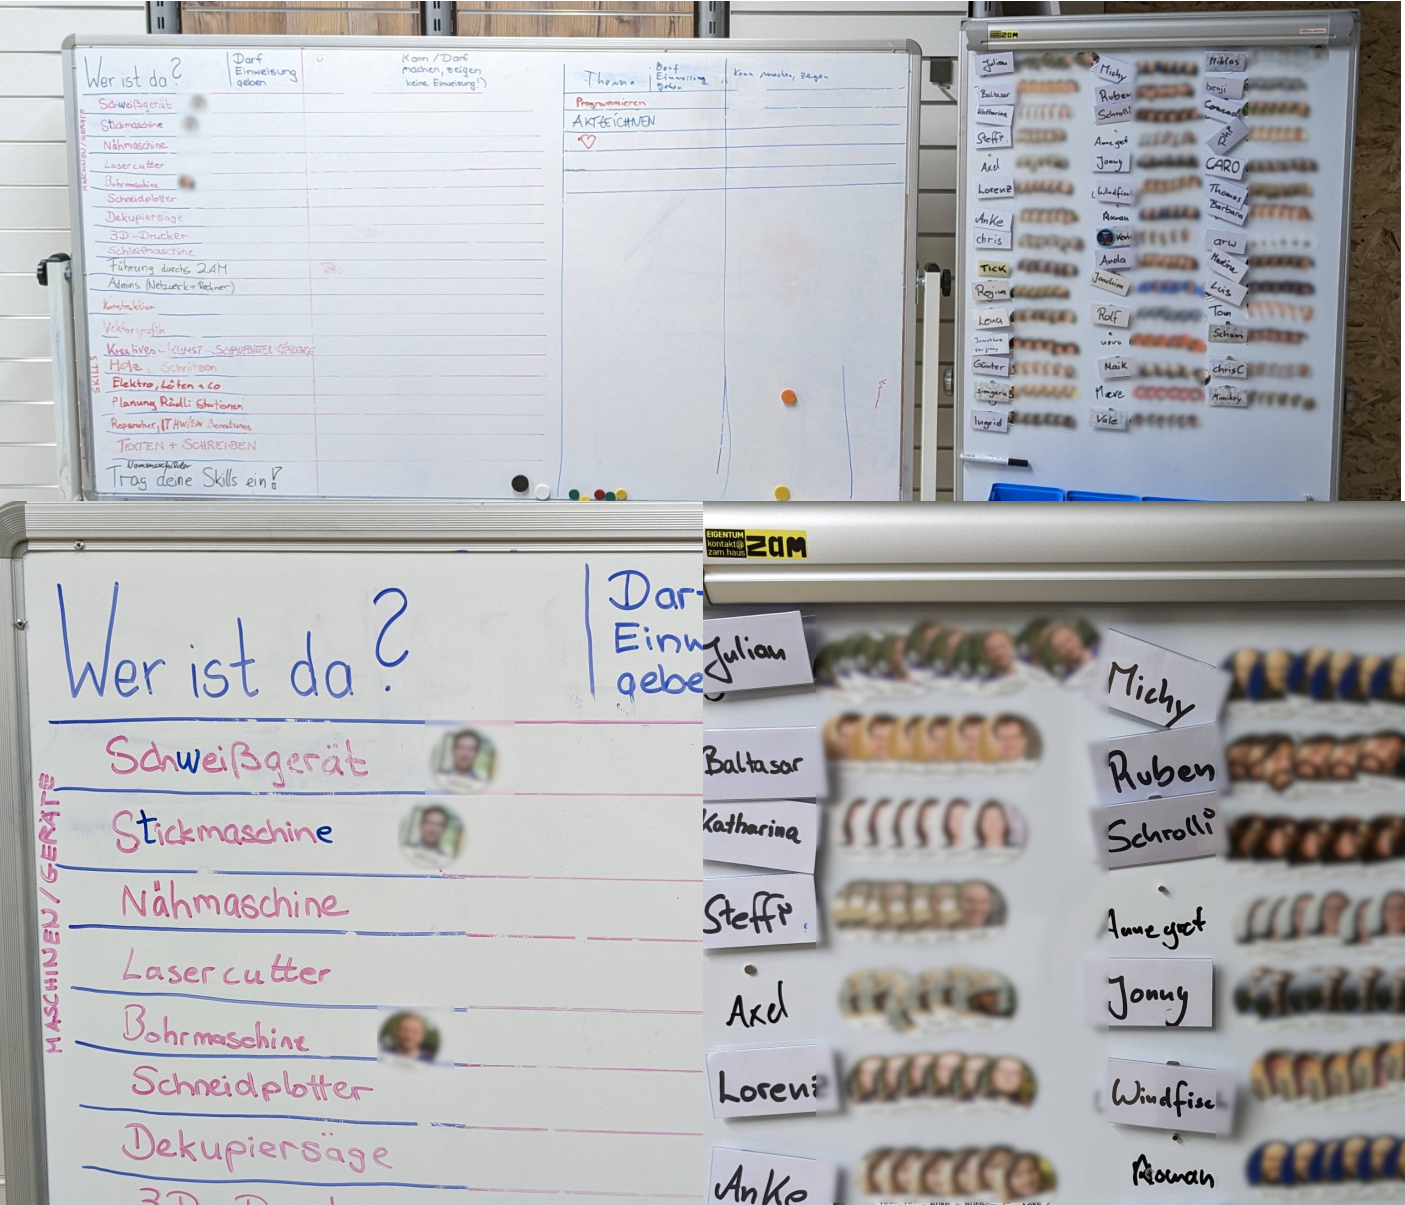 Wer ist da?
Darf
Einweisung
geben
Kann / Darf
machen, zeigen
(keine Einweisung!)
MASCHINEN/GERÄTE
Schweißgerät
Stickmaschine
Nähmaschine
Lasercutter
Bohrmaschine
Schneidplotter
Dekupiersäge
3D-Drucker
Schleifmaschine
Führung durchs ZAM
Admins (Netzwerk + Rechner)
SKILLS
Konstruktion
Vektorgrafik
Kreatives
Holz, Schnitzen
Elektro, Löten + Co
Planung Rädli Stationen
TEXTEN + SCHREIBEN
Namensschilder
Trag deine Skills ein!
Thema
Darf
Einweisung
geben
Kann machen, zeigen
Programmieren
AKTZEICHNEN
ZAM
Julian
Baltasar
Katharina
Steffi
Axel
Lorenz
Anke
chris
TICK
Regina
Lena
Günter
Ingrid
Michy
Ruben
Schrolli
Annegret
Jonny
Windfisc
Roman
Anda
Joachim
Rolf
Maik
Mære
Vale
Niklas
benji
Conrad
CARO
Thomas
Barbara
arw
Luis
Tom
chrisC
Wer ist da?
Dar
Einw
gebe
MASCHINEN/GERÄTE
Schweißgerät
Stickmaschine
Nähmaschine
Lasercutter
Bohrmaschine
Schneidplotter
Dekupiersäge
EIGENTUM
kontakt@
zam.haus
zam
Julian
Baltasar
Katharina
Steffi
Axel
Lorenz
Anke
Michy
Ruben
Schrolli
Annegret
Jonny
Windfisc
Roman